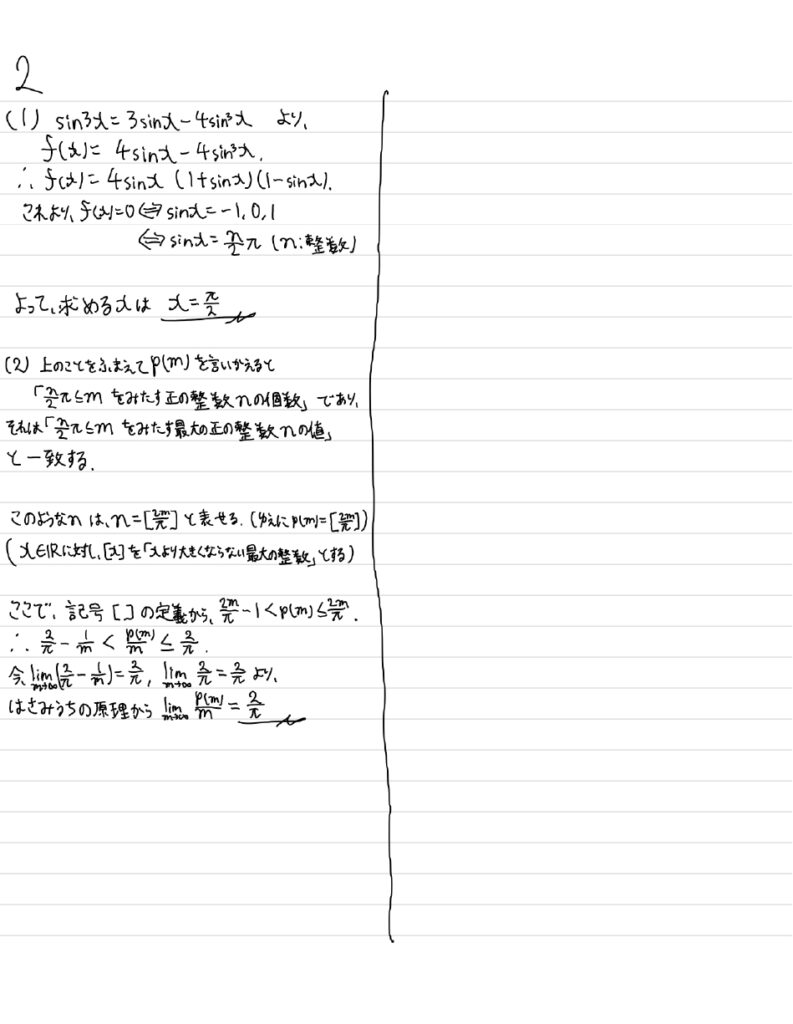 2
(1) sin3x = 3sinx - 4sin³x より、
f(x) = 4sinx - 4sin³x.
∴ f(x) = 4sinx (1+sinx)(1-sinx).
これより、f(x)=0 ⇔ sinx = -1, 0, 1
⇔ sinx = n/2 π (n:整数)
よって、求めるxは x = π/2
(2) 上のことをふまえてp(m)を言いかえると
「n/2 π ≤ m をみたす正の整数nの個数」であり、
それは「n/2 π ≤ m をみたす最大の正の整数nの値」
と一致する.
このようなnは、n=[2m/π]と表せる. (ゆえにp(m)=[2m/π])
(x∈ℝに対し、[x]を「xより大きくならない最大の整数」とする)
ここで、記号[ ]の定義から、2m/π - 1 < p(m) ≤ 2m/π.
∴ 2/π - 1/m < p(m)/m ≤ 2/π.
今、lim m→∞ (2/π - 1/m) = 2/π, lim m→∞ 2/π = 2/π より、
はさみうちの原理から lim m→∞ p(m)/m = 2/π